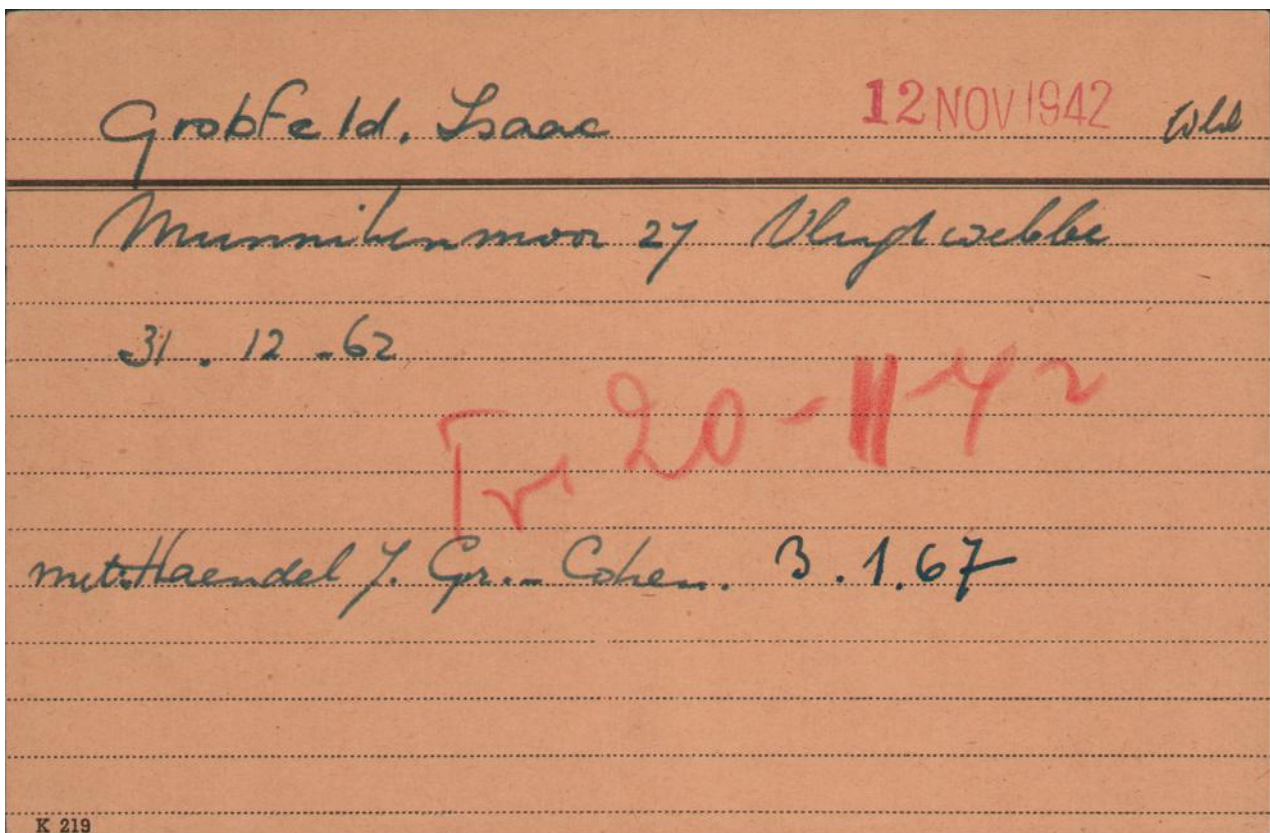 Grobfeld, Isaac 12 NOV 1942 Wbl
Munnikenmoor 27 Vlagtwedde
31 . 12 - 62
Tr. 20-11-42
met: Haendel J. Gr.- Cohen. 3.1.67
K 219